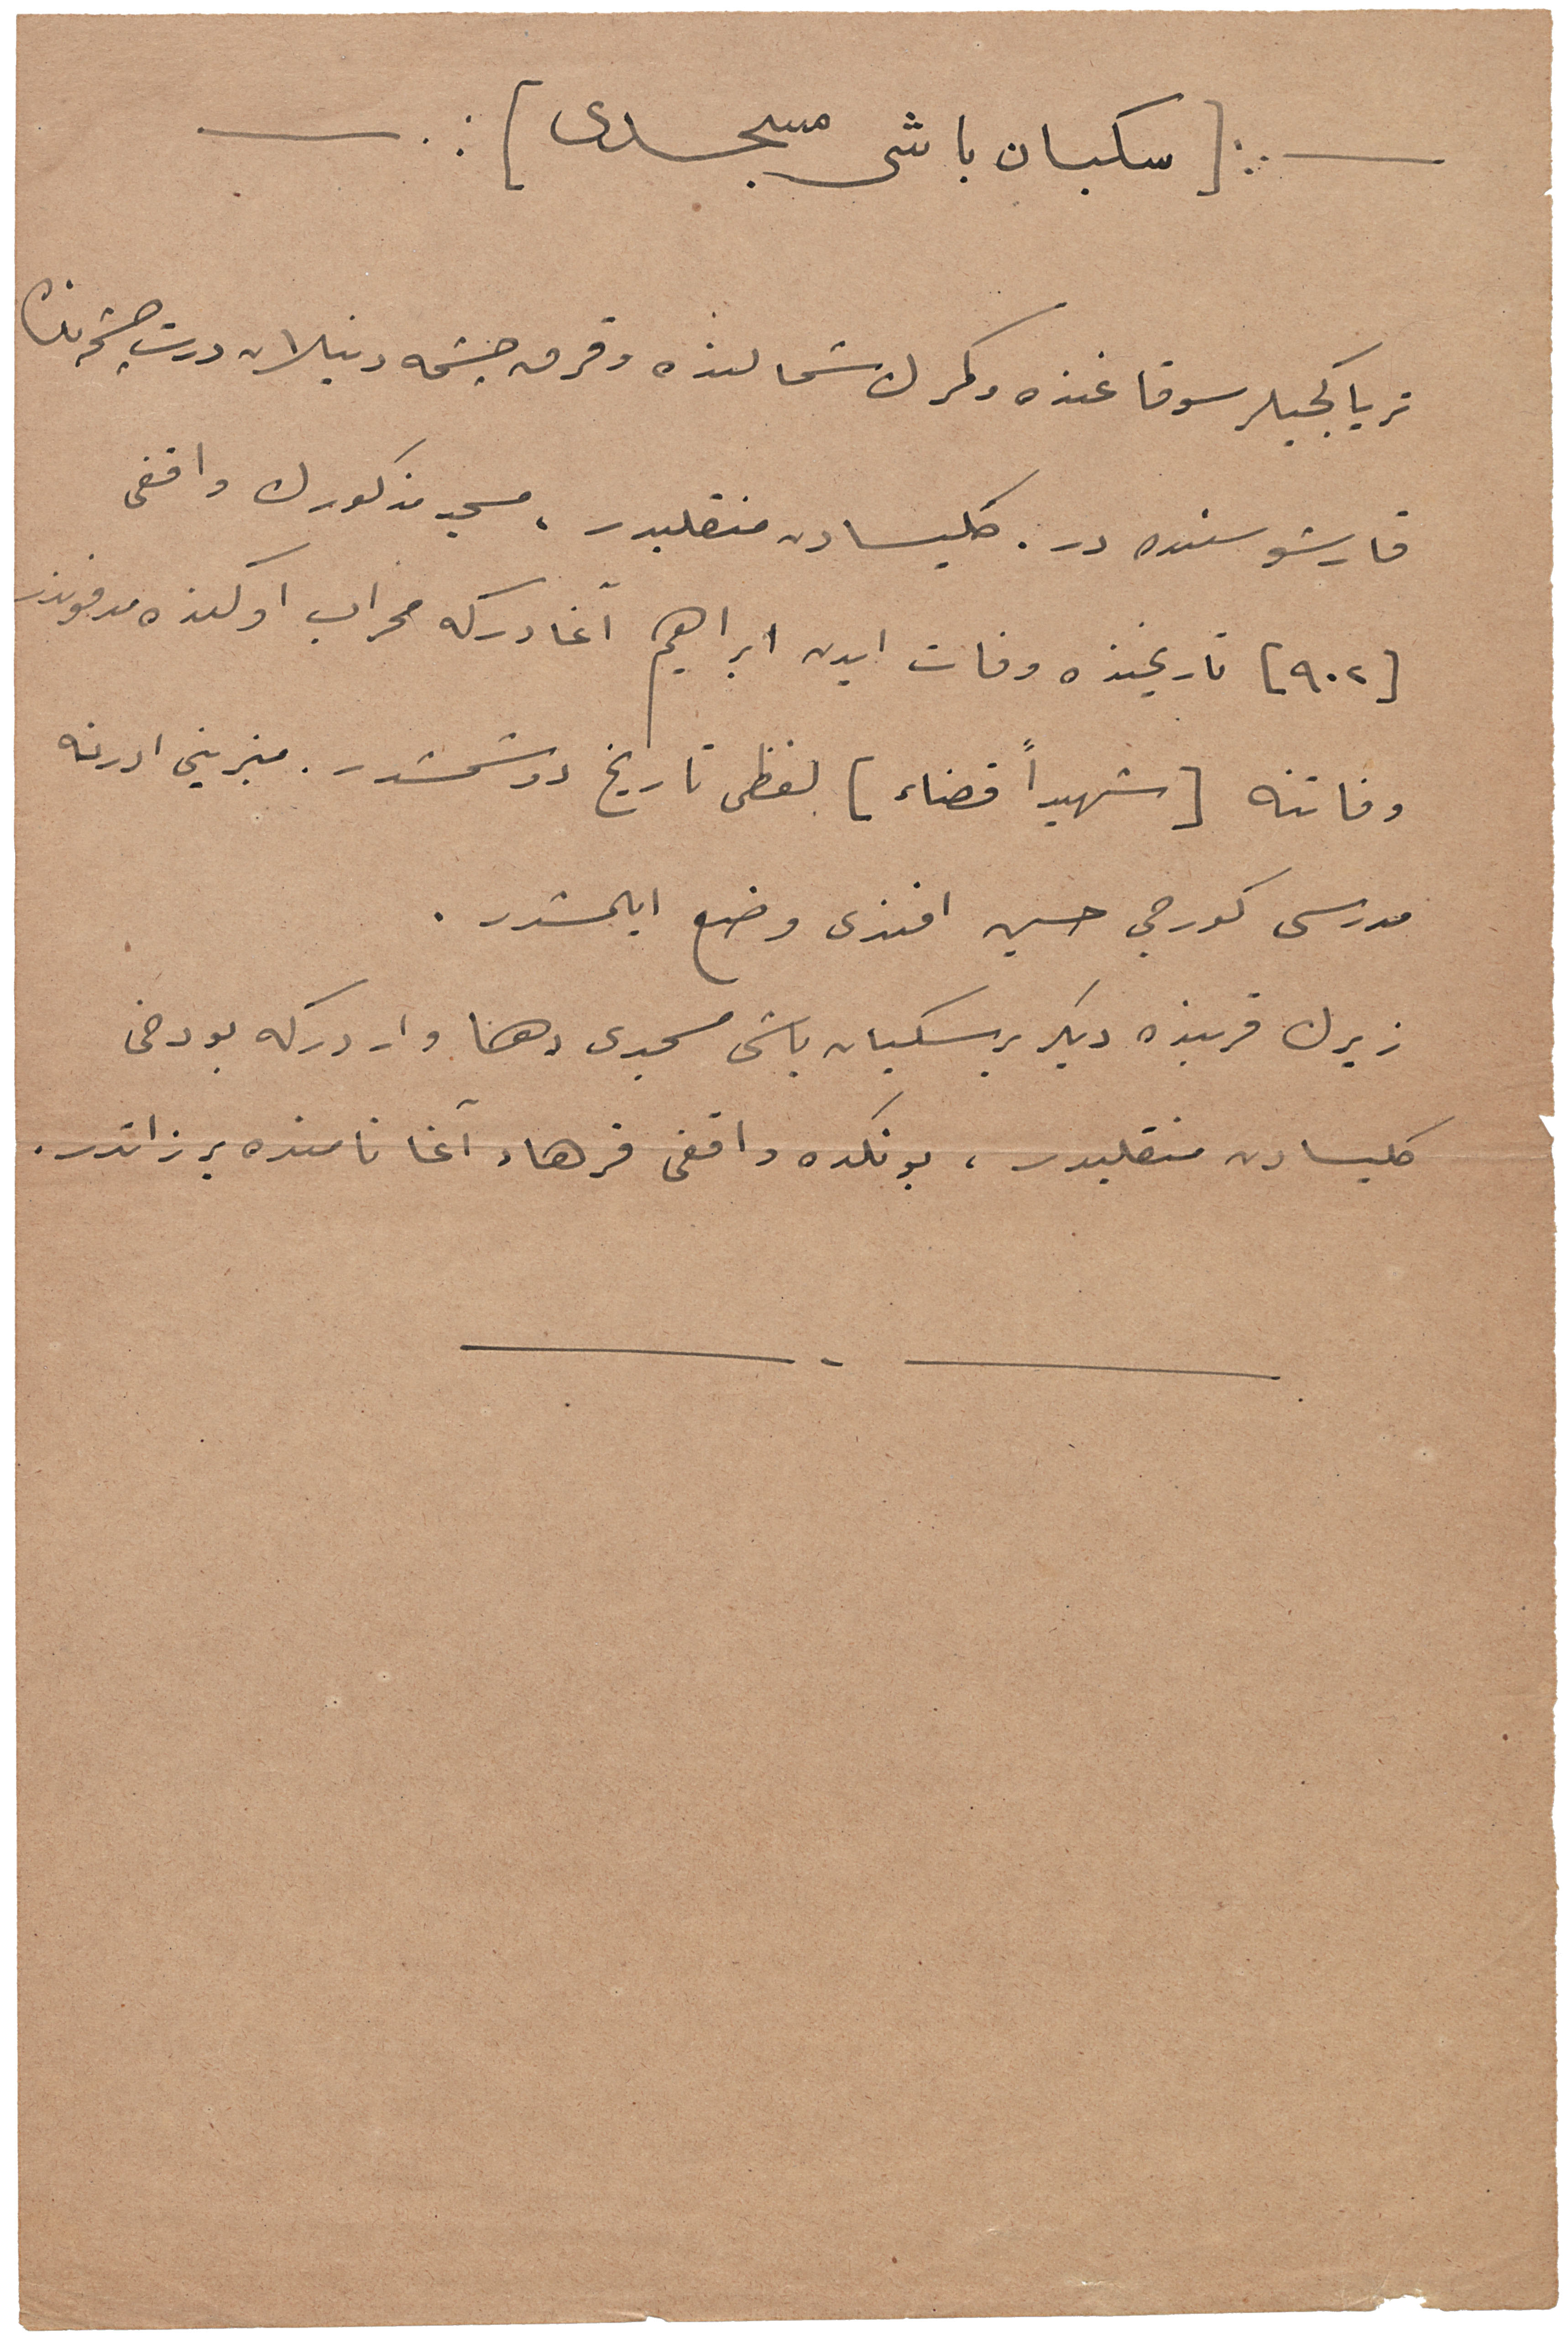 [سكبان باشی مسجدی]
ترياكجيلر سوقاغنده وكمرك شمالنده وقرق چشمه دنيلان درت چشمه نك
قارشوسنده در . كليسادن منقلبدر ، مسجد مذكورك واقفی
[٩٠٢] تاريخنده وفات ايدن ابراهيم آغادركه محراب اوكنده مدفوندر
وفاتنه [شهيداً قضاء] لفظی تاريخ دوشمشدر . منبرينی ادرنه
مدرسی كورجی حسين افندی وضع ايلمشدر .
زيرك قربنده ديكر بر سكبان باشی مسجدی دها واردركه بودخی
كليسادن منقلبدر ، بونكده واقفی فرهاد آغا نامنده بر ذاتدر .